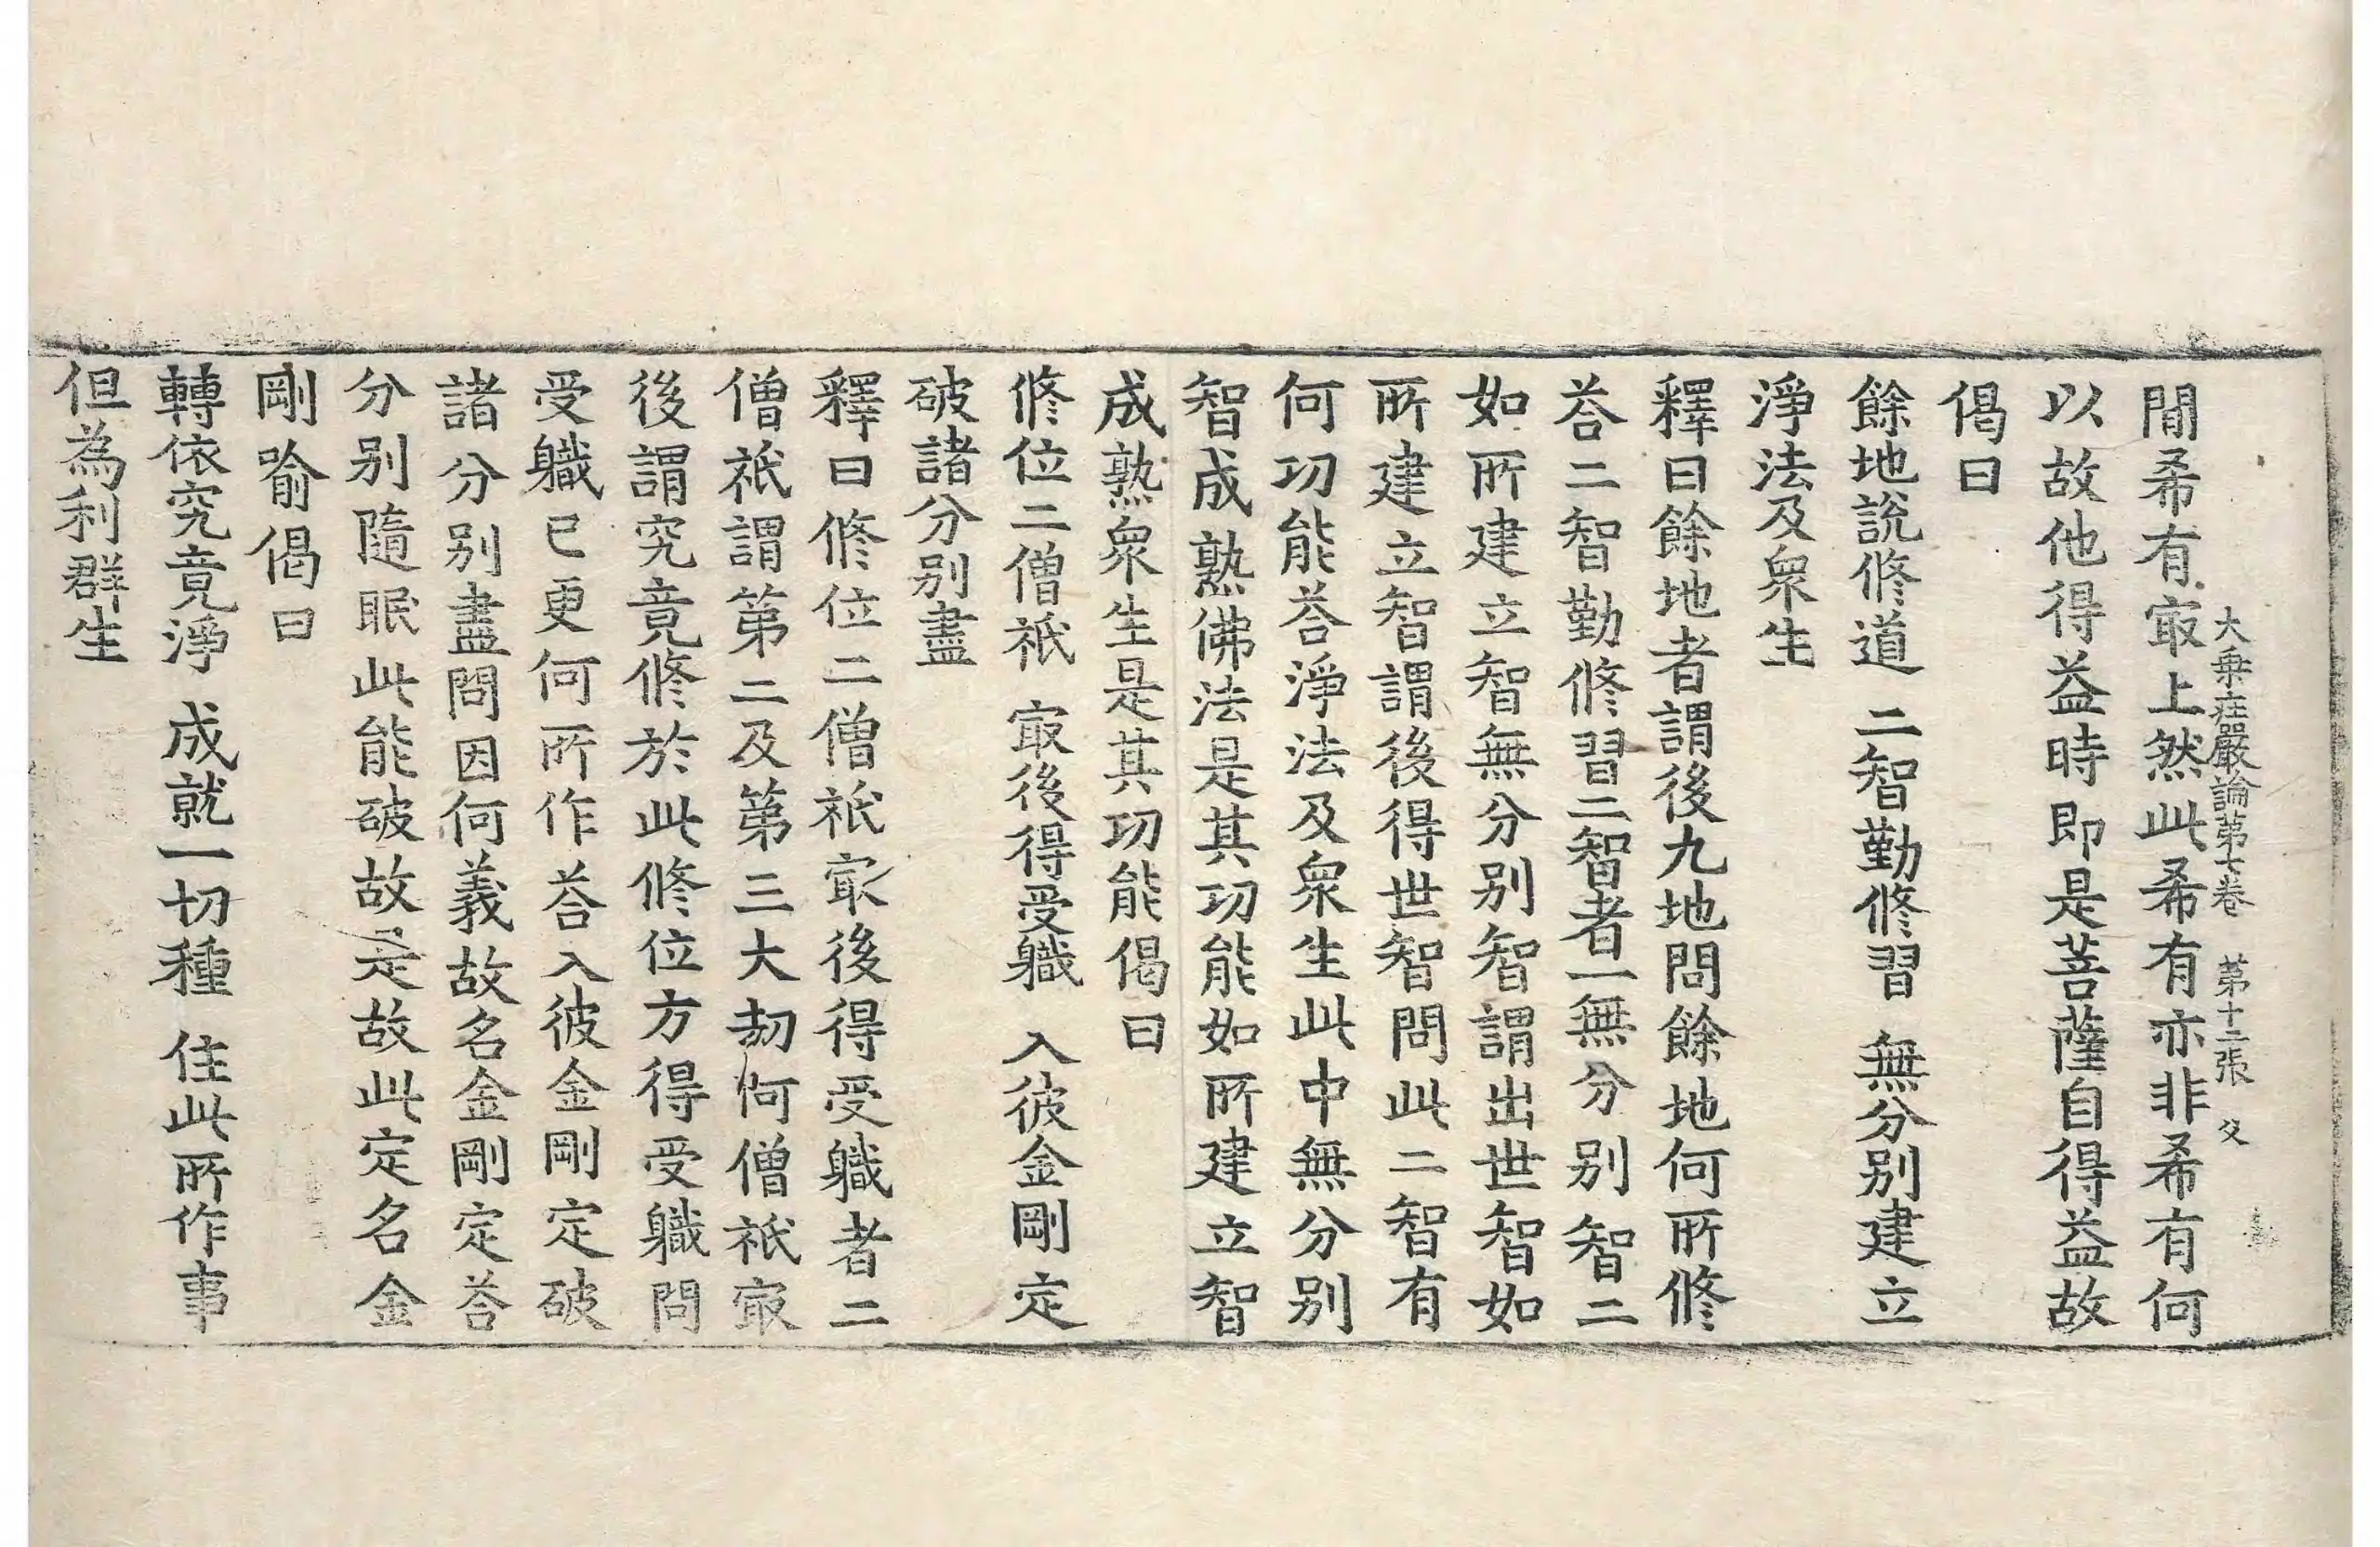 大乘庄嚴論第七卷　第十二張　父
間希有冣上然此希有亦非希有何
以故他得益時即是菩薩自得益故
偈曰
餘地說修道　二智勤修習　無分別建立
淨法及衆生
釋曰餘地者謂後九地問餘地何所修
荅二智勤修習二智者一無分別智二
如所建立智無分別智謂出世智如
所建立智謂後得世智問此二智有
何功能荅淨法及衆生此中無分別
智成熟佛法是其功能如所建立智
成熟衆生是其功能偈曰
修位二僧祇　冣後得受職　入彼金剛定
破諸分別盡
釋曰修位二僧祇冣後得受職者二
僧祇謂第二及第三大劫何僧祇冣
後謂究竟修於此修位方得受職問
受職已更何所作荅入彼金剛定破
諸分別盡問因何義故名金剛定荅
分別隨眠此能破故是故此定名金
剛喻偈曰
轉依究竟淨　成就一切種　住此所作事
但為利群生